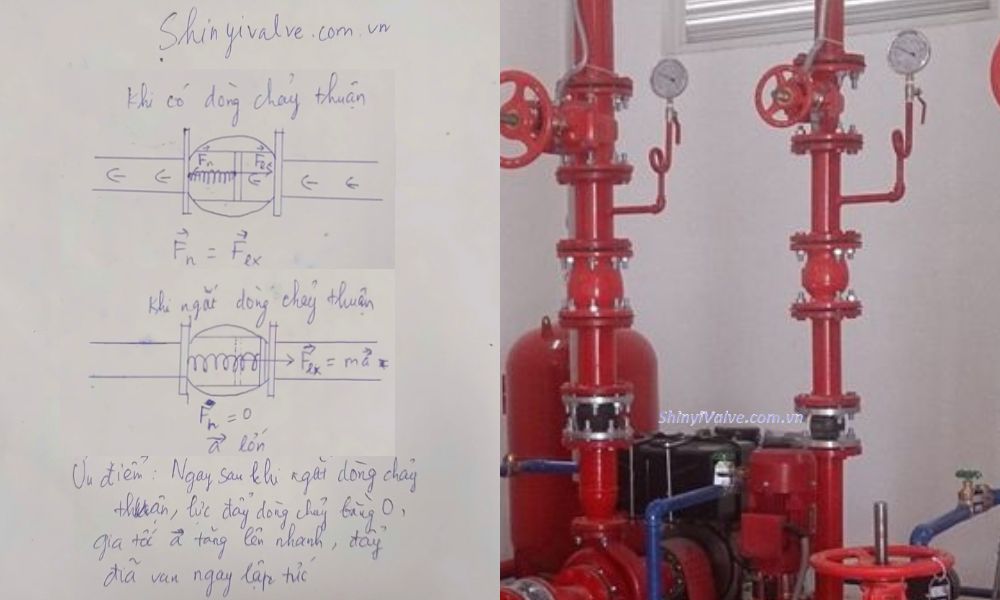 Shinyivalve.com.vn
Khi có dòng chảy thuận
Fn Fex
Fn = Fex
Khi ngắt dòng chảy thuận
Fex = ma
Fn = 0
a lớn
Ưu điểm: Ngay sau khi ngắt dòng chảy
thuận, lực đẩy dòng chảy bằng 0,
gia tốc a tăng lên nhanh, đẩy
đĩa van ngay lập tức
ShinyiValve.com.vn